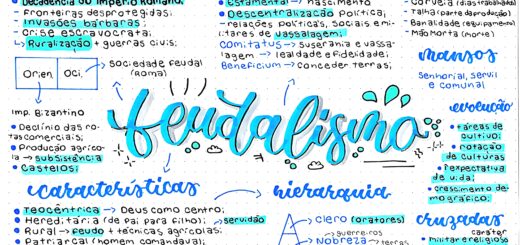 Decadência do Império Romano:
- Fronteiras desprotegidas;
- Invasões bárbaras;
- Crise escravocrata;
↳ Ruralização + guerras civis;
Orien. Oci. → Sociedade feudal
(Roma)
Imp. Bizantino
• Declínio das ro-
tas comerciais;
• Produção agríco-
la → subsistência
• Castelos;
Estamental → nascimento
• Descentralização Política;
- relações políticas, sociais emi-
litares de vassalagem;
Comitatus → suserania e vassa-
lagem → lealdade e fidelidade;
Beneficium → Conceder terras;
- Corveia (dias trabalhados)
- Talha (parte da produção)
- Banalidade (equipamento)
- Mão Morta (morte)
mansos
Senhorial, servil
e comunal
feudalismo
evolução
• áreas de
cultivo;
• rotação
de culturas
• expectativa
de vida;
• crescimento de-
mográfico;
características
• Teocêntrica → Deus como centro;
• Hereditária (de pai para filho); servidão
• Rural → feudo + técnicas agrícolas;
• Patriarcal (homem comandava);
hierarquia
Clero (oratores)
guerreiros
Nobreza → terras
cruzadas
caráter
militar e religioso